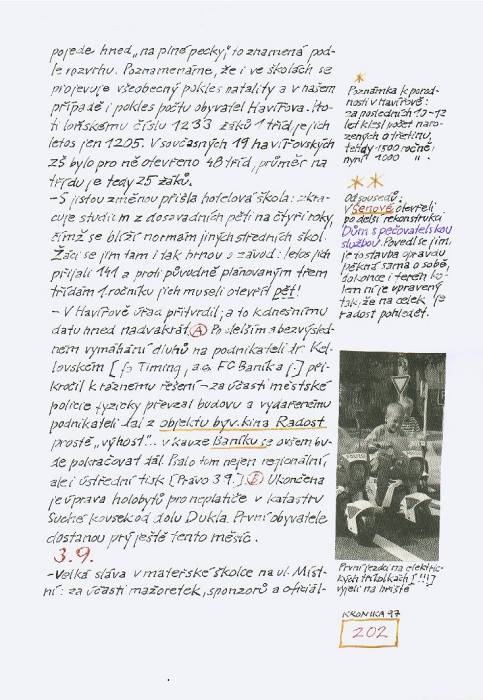 pojede hned „na plné pecky", to znamená pod-
le rozvrhu. Poznamenáme, že i ve školách se
projevuje všeobecný pokles natality a v našem
případě i pokles počtu obyvatel Havířova. Pro-
ti loňskému číslu 1233 žáků 1. tříd, je jich
letos jen 1205. V současných 19 havířovských
ZŠ bylo pro ně otevřeno 48 tříd, průměr na
třídu je tedy 25 žáků.
-S jistou změnou přišla hotelová škola: zkra-
cuje studium z dosavadních pěti na čtyři roky,
čímž se blíží normám jiných středních škol.
Žáci se jim tam i tak hrnou o závod: letos jich
přijali 141 a proti původně plánovaným třem
třídám 1. ročníku jich museli otevřít pět!
- V Havířově úřad přitvrdil; a to k dnešnímu
datu hned nadvakrát. A Po delším a bezvýsled-
ném vymáhání dluhů na podnikateli
[fy Timing, a.s. FC Baník aj.] při-
kročil k ráznému řešení - za účasti městské
policie fyzicky převzal budovu a vydařenému
podnikateli dal z objektu býv. kina Radost
prostě „výhost"... v kauze Baníku se ovšem bu-
de pokračovat dál. Psal o tom nejen regionální,
ale i ústřední tisk [Právo 3.9.]. B Ukončena
je úprava holobytů pro neplatiče v katastru
Suché kousek od dolu Dukla. První obyvatele
dostanou prý ještě tento měsíc.
3.9.
-Velká sláva v mateřské školce na ul. Míst-
ní: za účasti mažoretek, sponzorů a oficiál-
*
Poznámka k porod-
nosti v Havířově:
za posledních 10-12
let klesl počet naro-
zených o třetinu,
tehdy 1500 ročně,
nyní 1000 ".
**
Od sousedů.
V Šenově otevřeli
po delší rekonstrukci
Dům s pečovatelskou
službou. Povedl se jim,
je to stavba opravdu
pěkná sama o sobě,
dokonce i terén ko-
lem ní je upravený
tak, že na celek je
radost pohledět.
První jezdci na elektric-
kých tříkolkách [!!!]
vyjeli na hřiště
KRONIKA 97
202